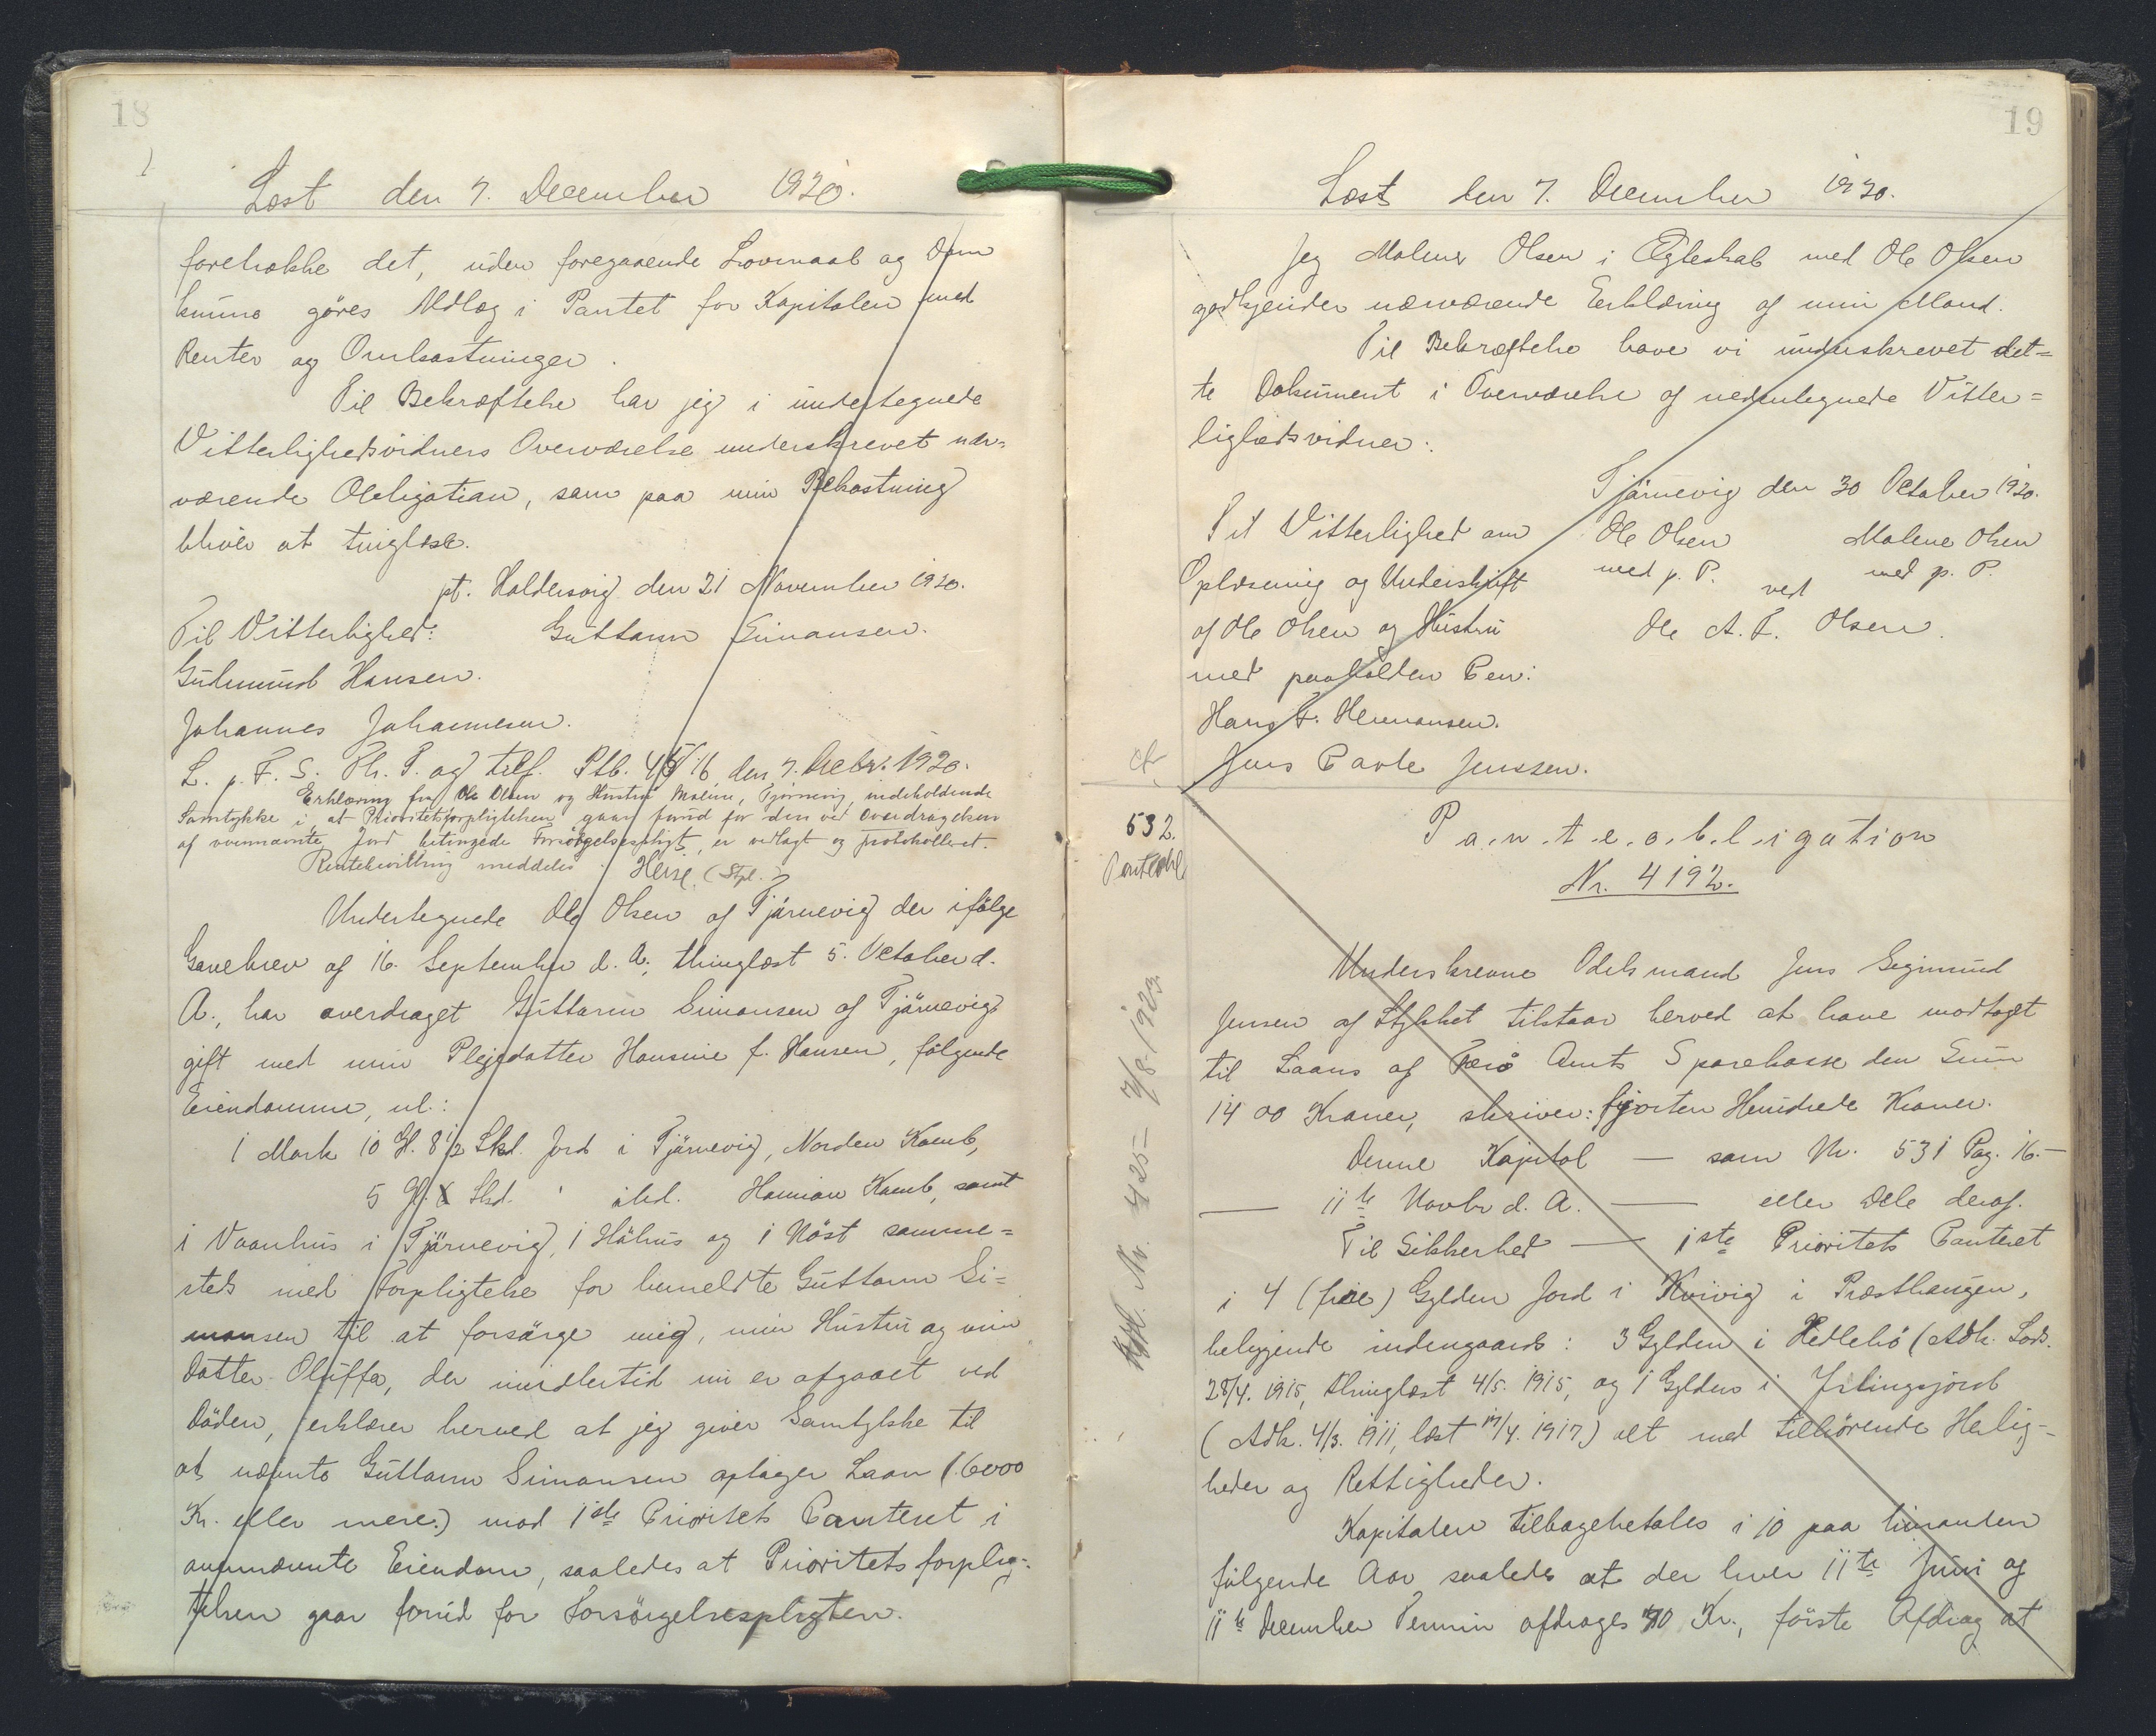 18
Læst den 7. December 1920.
foretrække det, uden foregaaende Lovmaal og Dom
kunne göres Udlæg i Pantet for Kapitalen med
Renter og Omkostninger.
Til Bekræftelse har jeg i undertegnede
Vitterlighedsvidners Overværelse underskrevet nær=
værende Obligation, som paa min Bekostning
bliver at tinglæse.
pt. Haldersvig den 21 November 1920.
Til Vitterlighed: Guttorm Simonsen.
Gudmund Hansen.
Johannes Johannesen.
L. p. F. S. Th. P. og tilf. Ptb. den 7. Decbr. 1920.
Erklæring fra Ole Olsen og Hustru Malene, Tjörnevig, indeholdende
Samtykke i at Prioritetsforpligtelsen gaar forud for den ved Overdragelsen
af ovennævnte Jord betingede Forsörgelsespligt, er vedlagt og protokolleret.
Rentebevilling meddeles Heise (Stpl.)
Undertegnede Ole Olsen af Tjörnevig der ifölge
Gavebrev af 16. September d. A., thinglæst 5. October d.
A., har overdraget Guttorm Simonsen af Tjörnevig
gift med min Plejedatter Hansine f. Hansen, fölgende
Eiendomme, nl.:
1 Mark 10 Gl. 8½ Skd. Jord i Tjörnevig, Norden Kamb,
5 Gl. Skd. " ibd. Kamb, samt
1 Vaanhus i Tjörnevig, 1 Höhus og 1 Nöst samme=
steds med Forpligtelse for bemeldte Guttorm Si=
monsen til at forsörge mig, min Hustru og min
Datter Oluffa, der imidlertid nu er afgaaet ved
Döden, erklærer herved at jeg giver Samtykke til
at nævnte Guttorm Simonsen optager Laan (6000
Kr. eller mere) mod 1ste Prioritets Panteret i
ovennævnte Eiendom, saaledes at Prioritetsforplig-
telsen gaar forud for Forsörgelsespligten.
19
Læst den 7. December 1920.
Jeg Malene Olsen i Ægteskab med Ole Olsen
godkjender nærværende Erklæring af min Mand.
Til Bekræftelse have vi underskrevet det=
te Dokument i Overværelse af nedentegnede Vitter=
lighedsvidner:
Tjörnevig den 30 October 1920.
Til Vitterlighed om Ole Olsen Malene Olsen
Oplæsning og Underskrift med p. P. ved med p. P.
af Ole Olsen og Hustru Ole A. F. Olsen.
med paaholden Pen:
Hans F. Hermansen.
Jens Pavle Jenssen.
532. Panteobligation
Panteobl. Nr. 4192.
Underskrevne Odelsmand Jens Sigimund
Jensen af Stykket tilstaar herved at have modtaget
til Laans af Færö Amts Sparekasse den Sum
1400 Kroner, skriver: fjorten Hundrede Kroner.
Denne Kapital — som Nr. 531 Pag. 16.—
— 11te Novbr d. A. — eller Dele deraf.
Til Sikkerhed — 1ste Prioritets Panteret
i 4 (fire) Gylden Jord i Kvivig i Præsthaugen,
beliggende indengaards: 3 Gylden i (Adk. Lods.
28/4. 1915, thinglæst 4/5. 1915, og 1 Gylden i
(Adk. 4/3. 1911, læst 17/4. 1917) alt med tilhörende Herlig-
heder og Rettigheder.
Kapitalen tilbagebetales i 10 paa hinanden
fölgende Aar saaledes at der hver 11te Juni og
11te December Termin afdrages 70 Kr., förste Afdrag at
Kpl. Nr. 425 - 7/8-1923